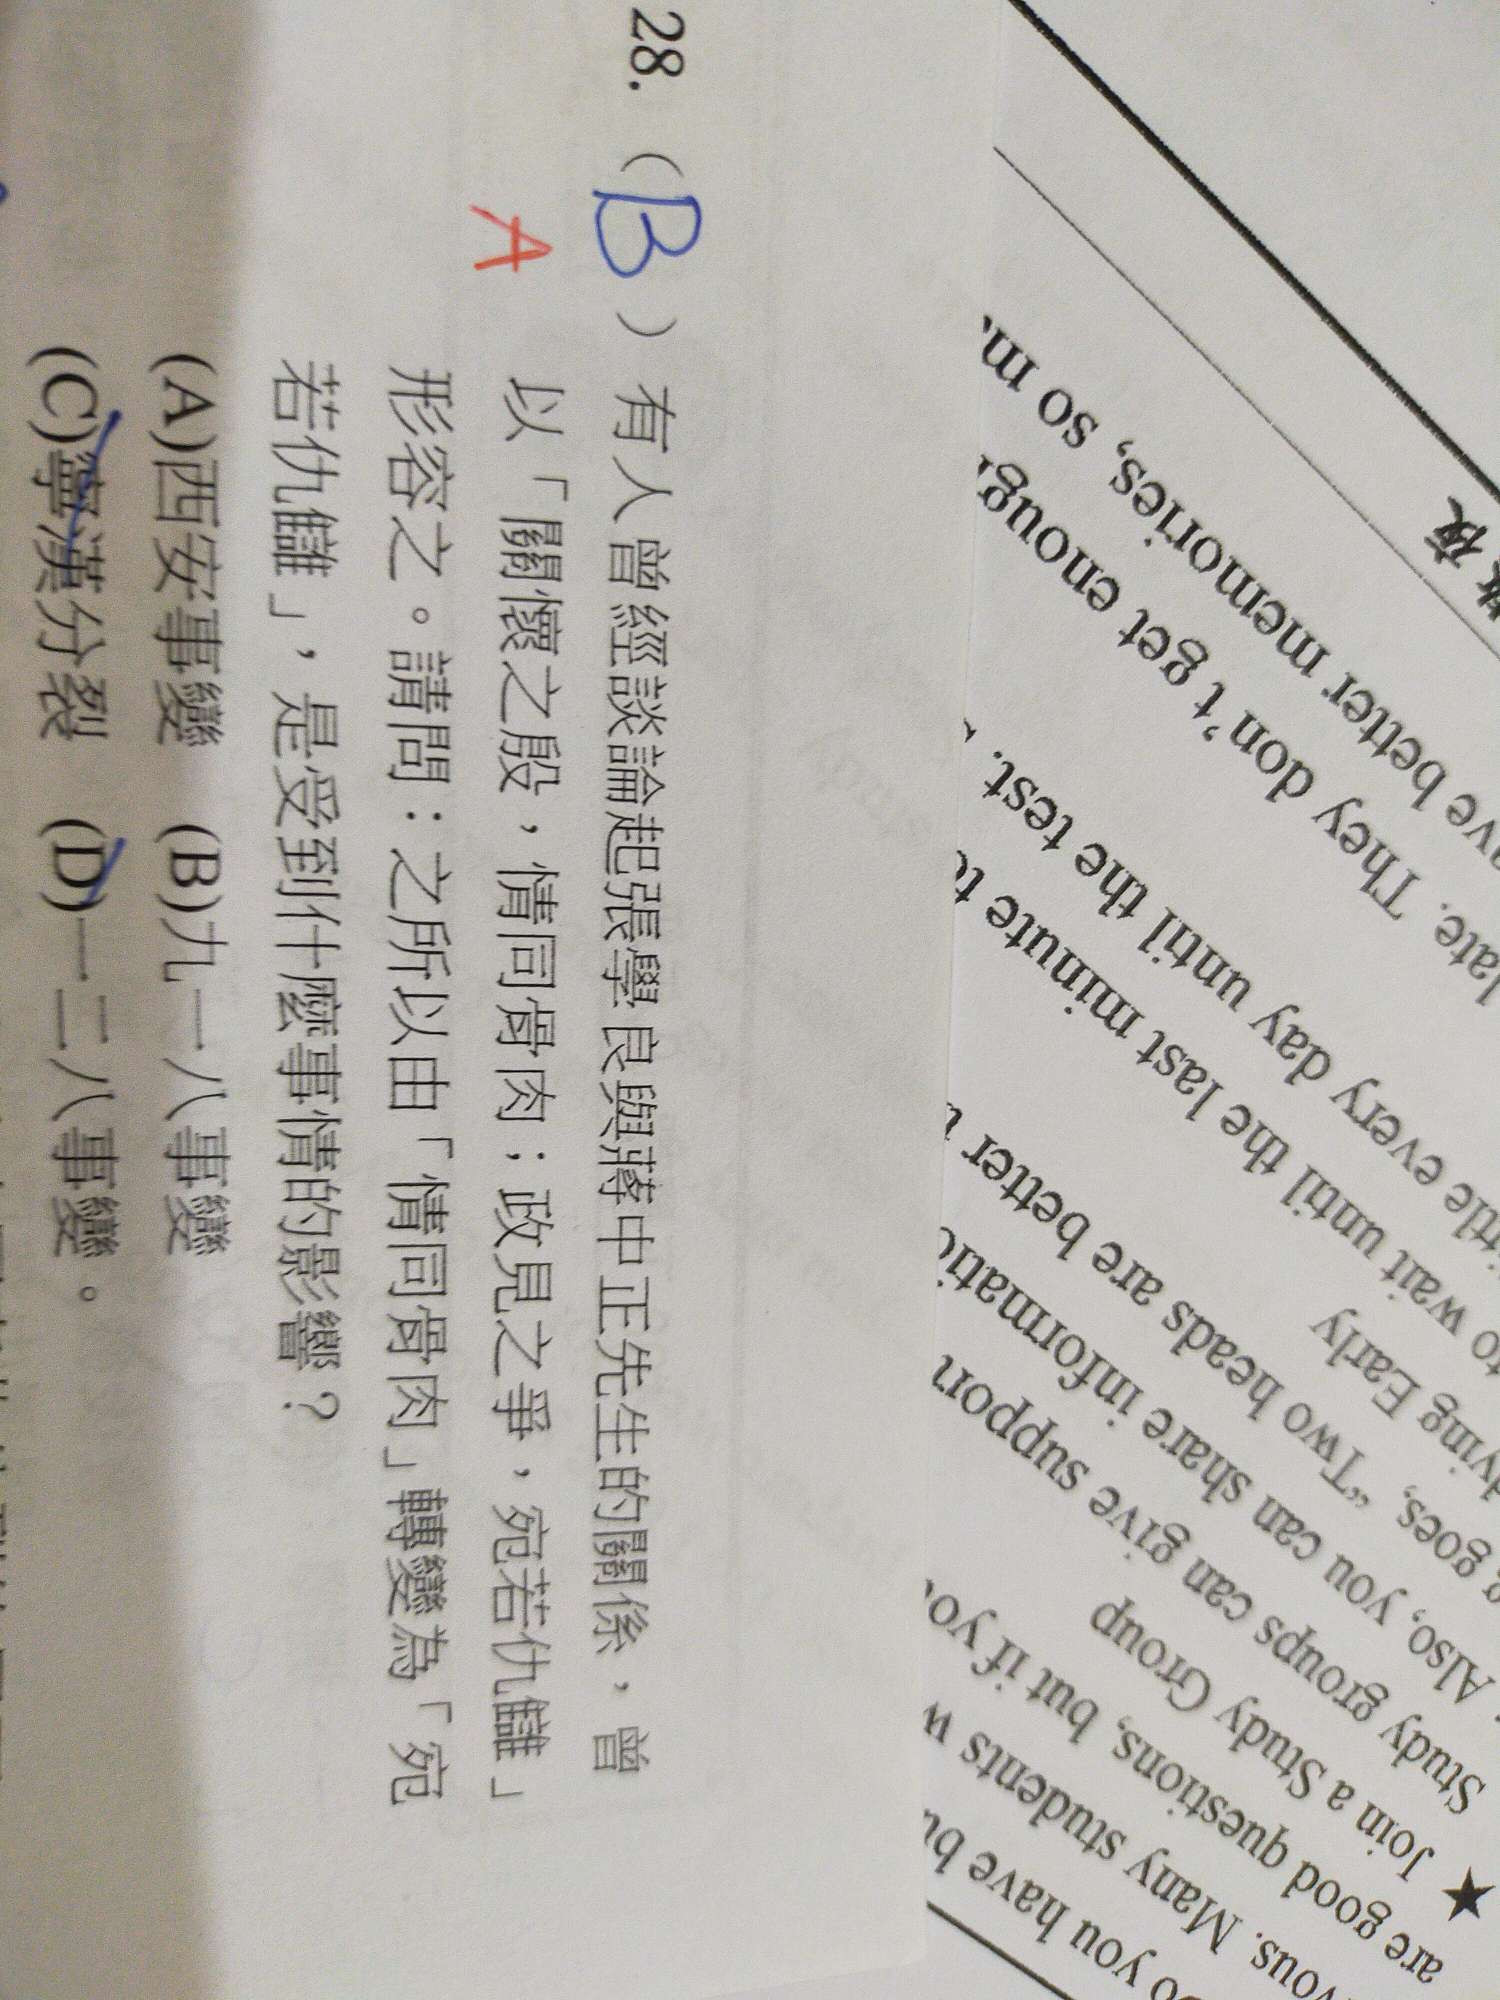 28. (B) 有人曾經談論起張學良與蔣中正先生的關係，曾
A 以「關懷之殷，情同骨肉；政見之爭，宛若仇讎」
形容之。請問：之所以由「情同骨肉」轉變為「宛
若仇讎」，是受到什麼事情的影響？
(A)西安事變 (B)九一八事變
(C)寧漢分裂 (D)一二八事變。
o you have
vous. Many students
are good questions, but if
★ Join a Study Group
Study groups can give
Also, you can share
goes, “Two heads are better
Early
to wait until the last minute
every day until the test.
late. They don’t get
better memories, so
夜